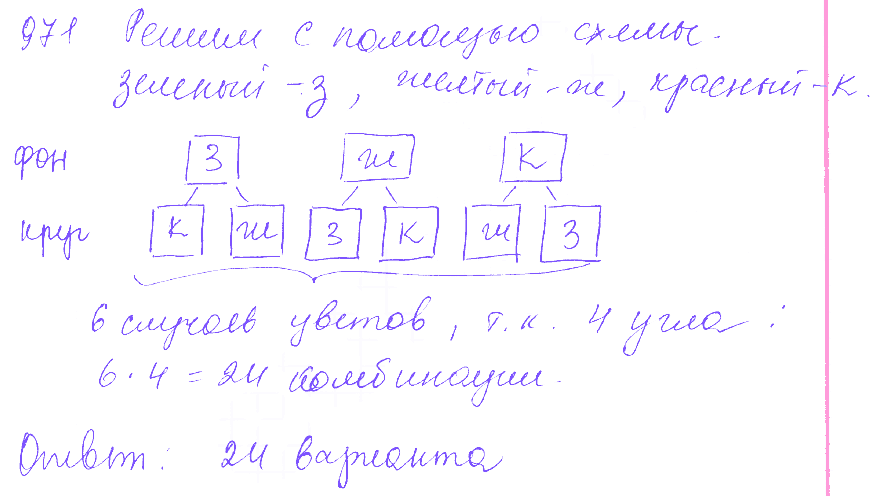 971 Решим с помощью схемы.
зеленый - з, желтый - ж, красный - к.
фон З ж К
круг К ж З К ж З
6 случаев цветов, т.к. 4 угла:
6 · 4 = 24 комбинации.
Ответ: 24 варианта